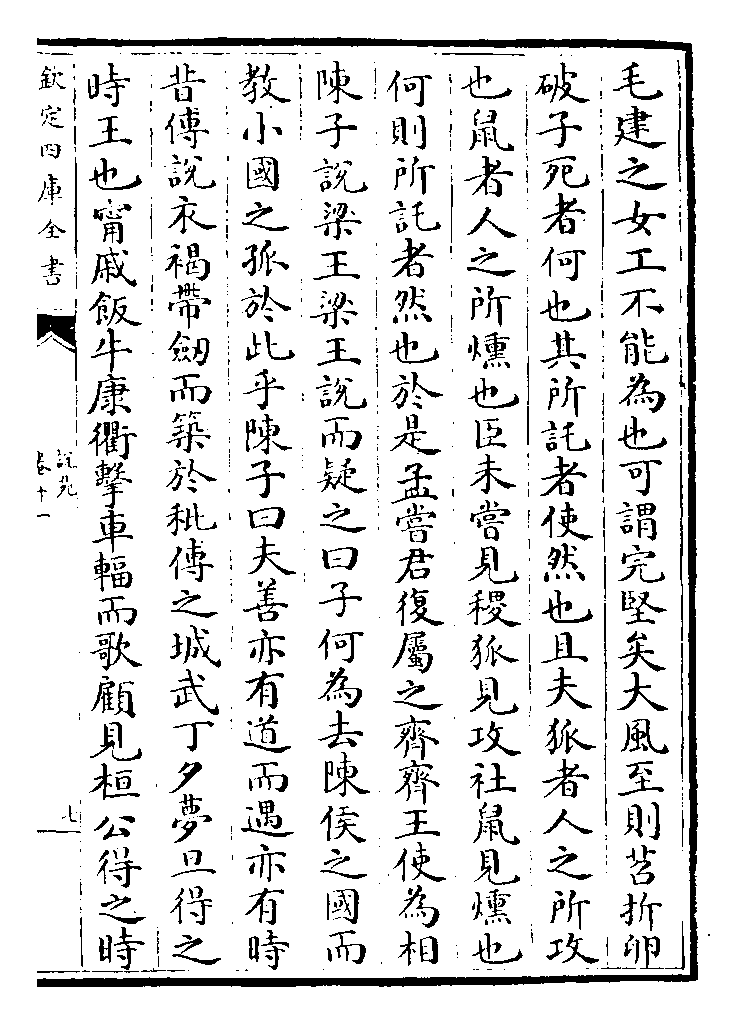 毛建之女工不能為也可謂完堅矣大風至則苕折卵
破子死者何也其所託者使然也且夫狐者人之所攻
也鼠者人之所燻也臣未嘗見稷狐見攻社鼠見燻也
何則所託者然也於是孟嘗君復屬之齊齊王使為相
陳子說梁王梁王說而疑之曰子何為去陳侯之國而
教小國之孤於此乎陳子曰夫善亦有道而遇亦有時
昔傅說衣褐帶劒而築於秕傅之城武丁夕夢旦得之
時王也甯戚飯牛康衢擊車輻而歌顧見桓公得之時
欽定四庫全書
說苑
卷十一
七